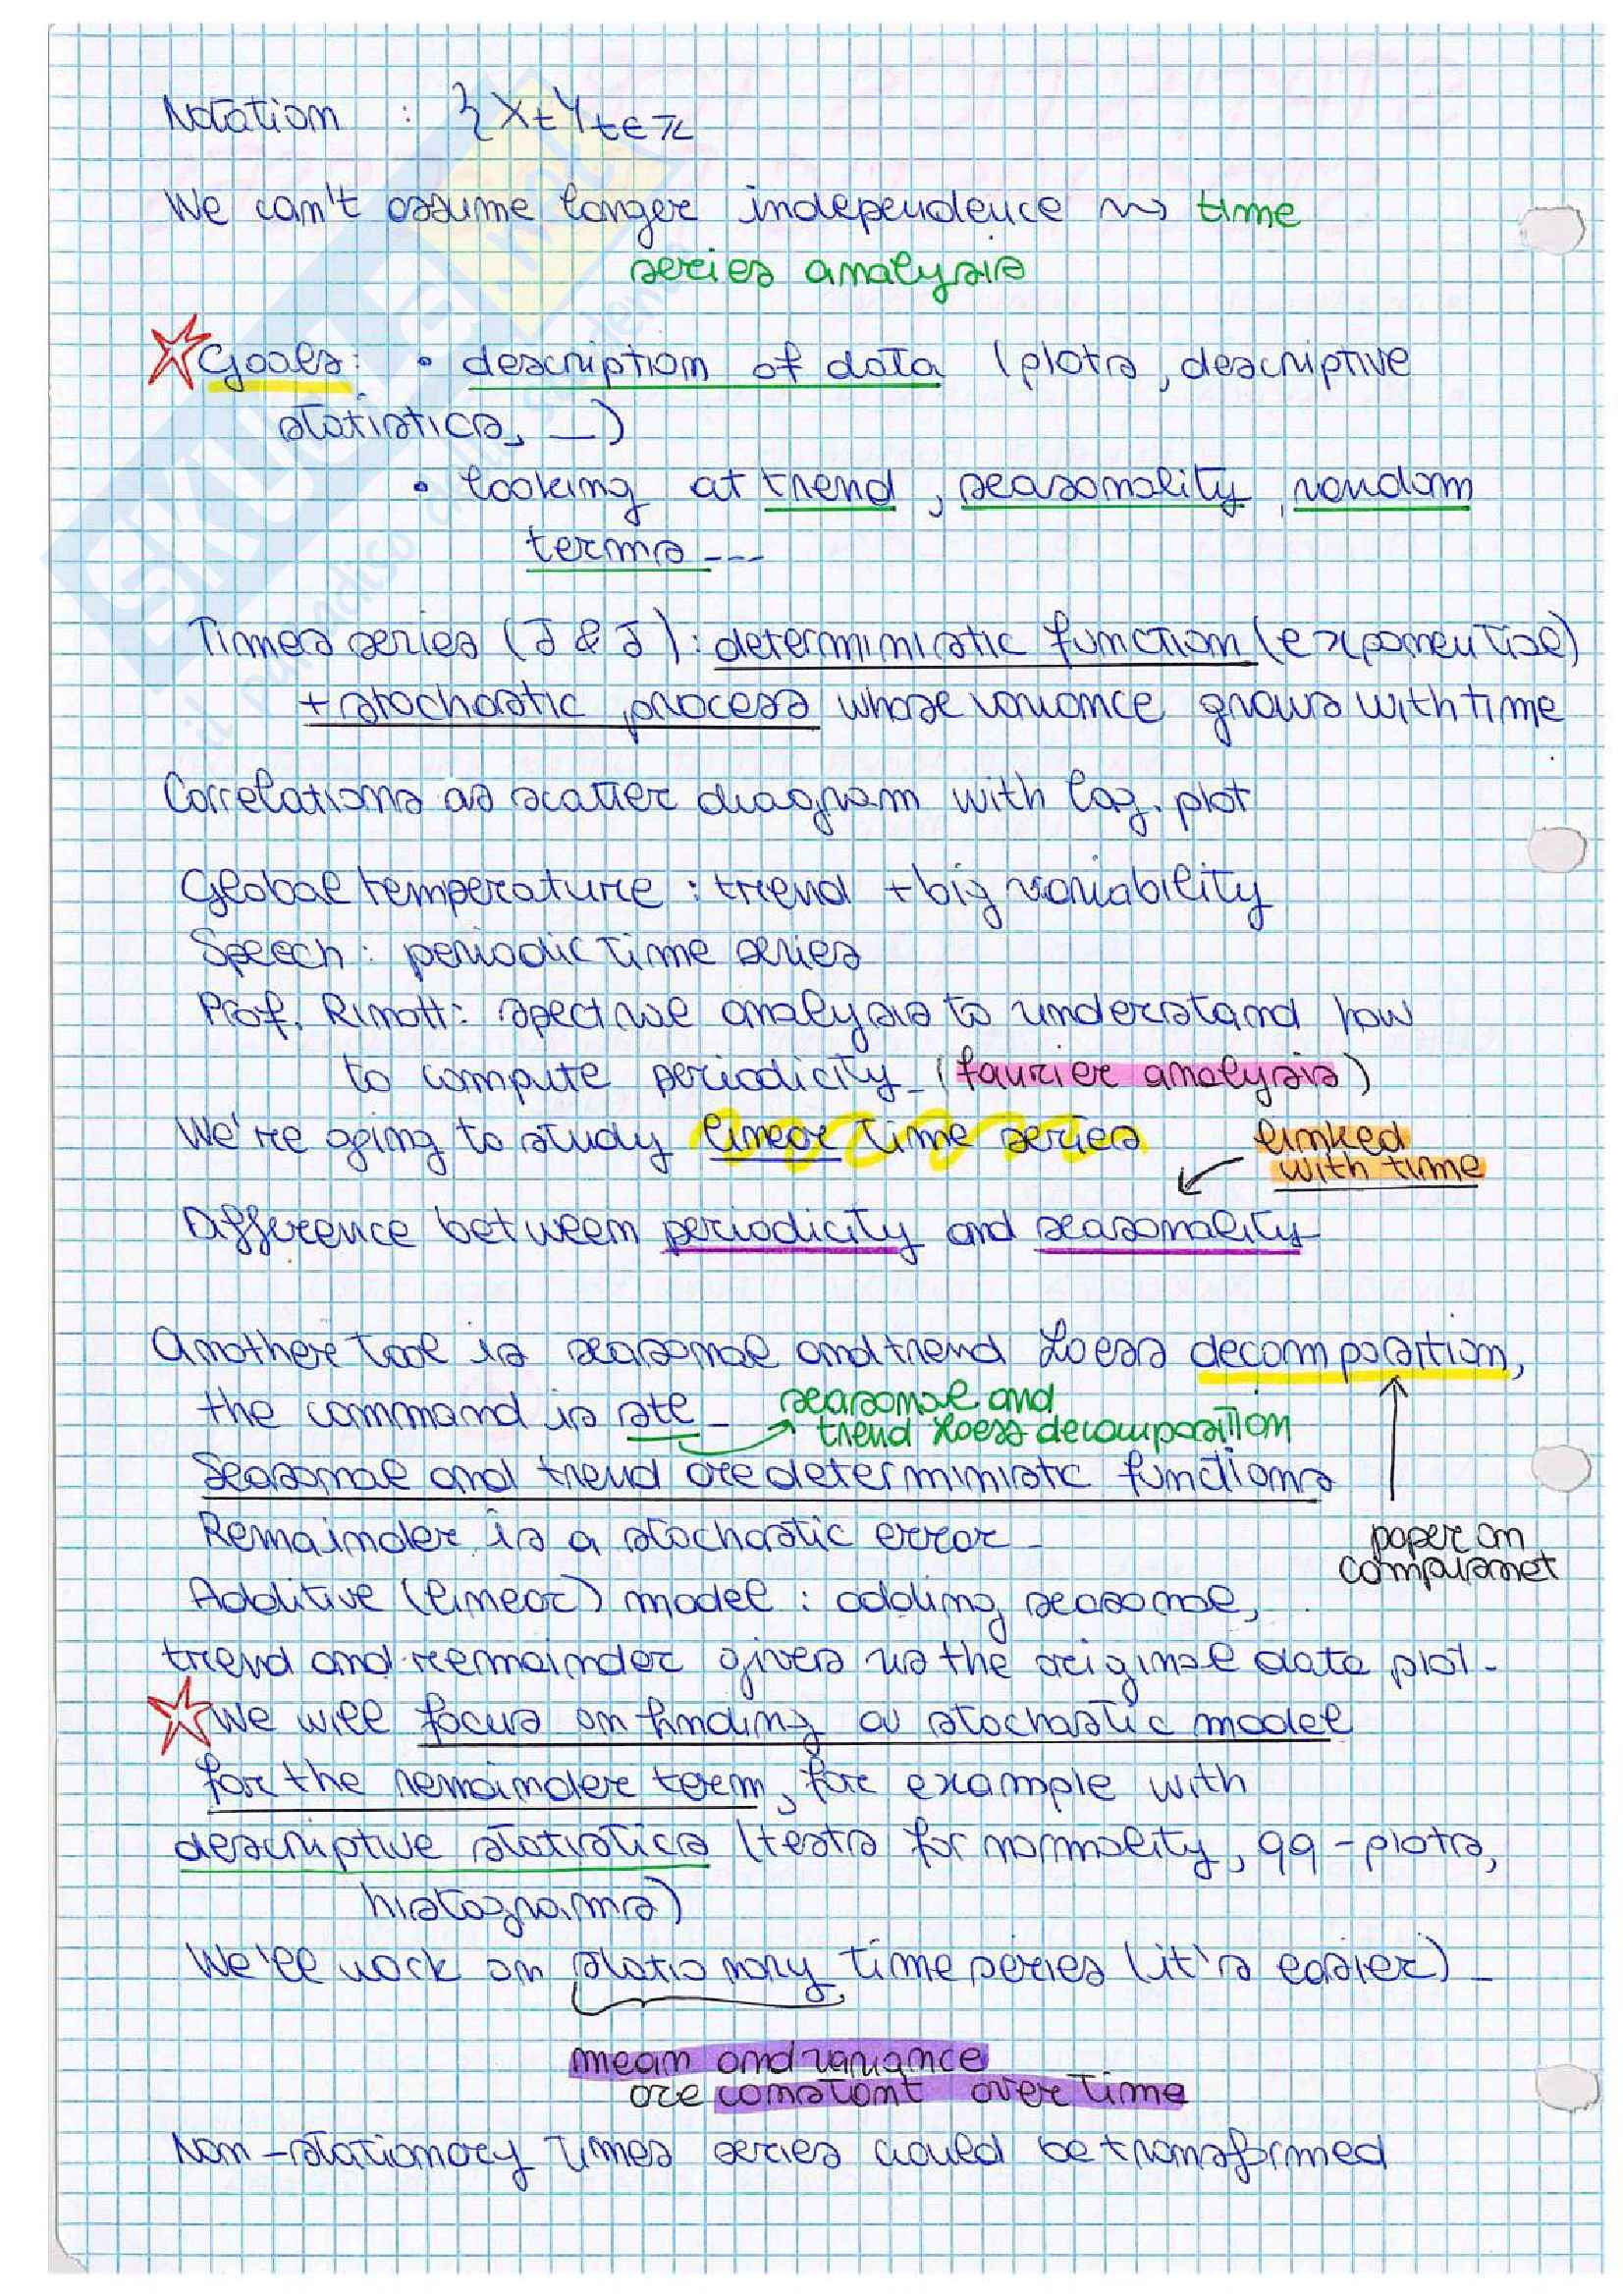 Notation : {X_t}_{t∈ℤ}
We can't assume longer independence ⇝ time
series analysis
Goals: • description of data (plots, descriptive
statistics, ...)
• looking at trend, seasonality, random
terms ---
Times series (J & J): deterministic function (exponential)
+ stochastic process whose variance grows with time
Correlations as scatter diagram with lag.plot
Global temperature: trend + big variability
Speech: periodic time series
Prof. Rinott: spectral analysis to understand how
to compute periodicity. (fourier analysis)
We're going to study linear time series
linked
with time
Difference between periodicity and seasonality
Another tool is seasonal and trend Loess decomposition,
the command is stl.
seasonal and
trend Loess decomposition
Seasonal and trend are deterministic functions
Remainder is a stochastic error.
paper on
compusnet
Additive (linear) model: adding seasonal,
trend and remainder gives us the original data plot.
We will focus on finding a stochastic model
for the remainder term, for example with
descriptive statistics (tests for normality, qq-plots,
histograms)
We'll work on stationary time series (it's easier).
mean and variance
are constant over time
Non-stationary times series could be transformed
SKUOLA.net